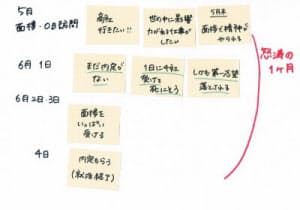 5月
面接・OB訪問
商社
行きたい!!
世の中に影響
力が出る仕事が
したい
5月末
面接で精神が
やられる
6月1日
まだ内定が
ない
1日に4社
受けて
死にそう
しかも第一志望
落とされる
6月2日・3日
面接を
いっぱい
受ける
4日
内定もらう
(就活終了)
怒涛の
1ヶ月